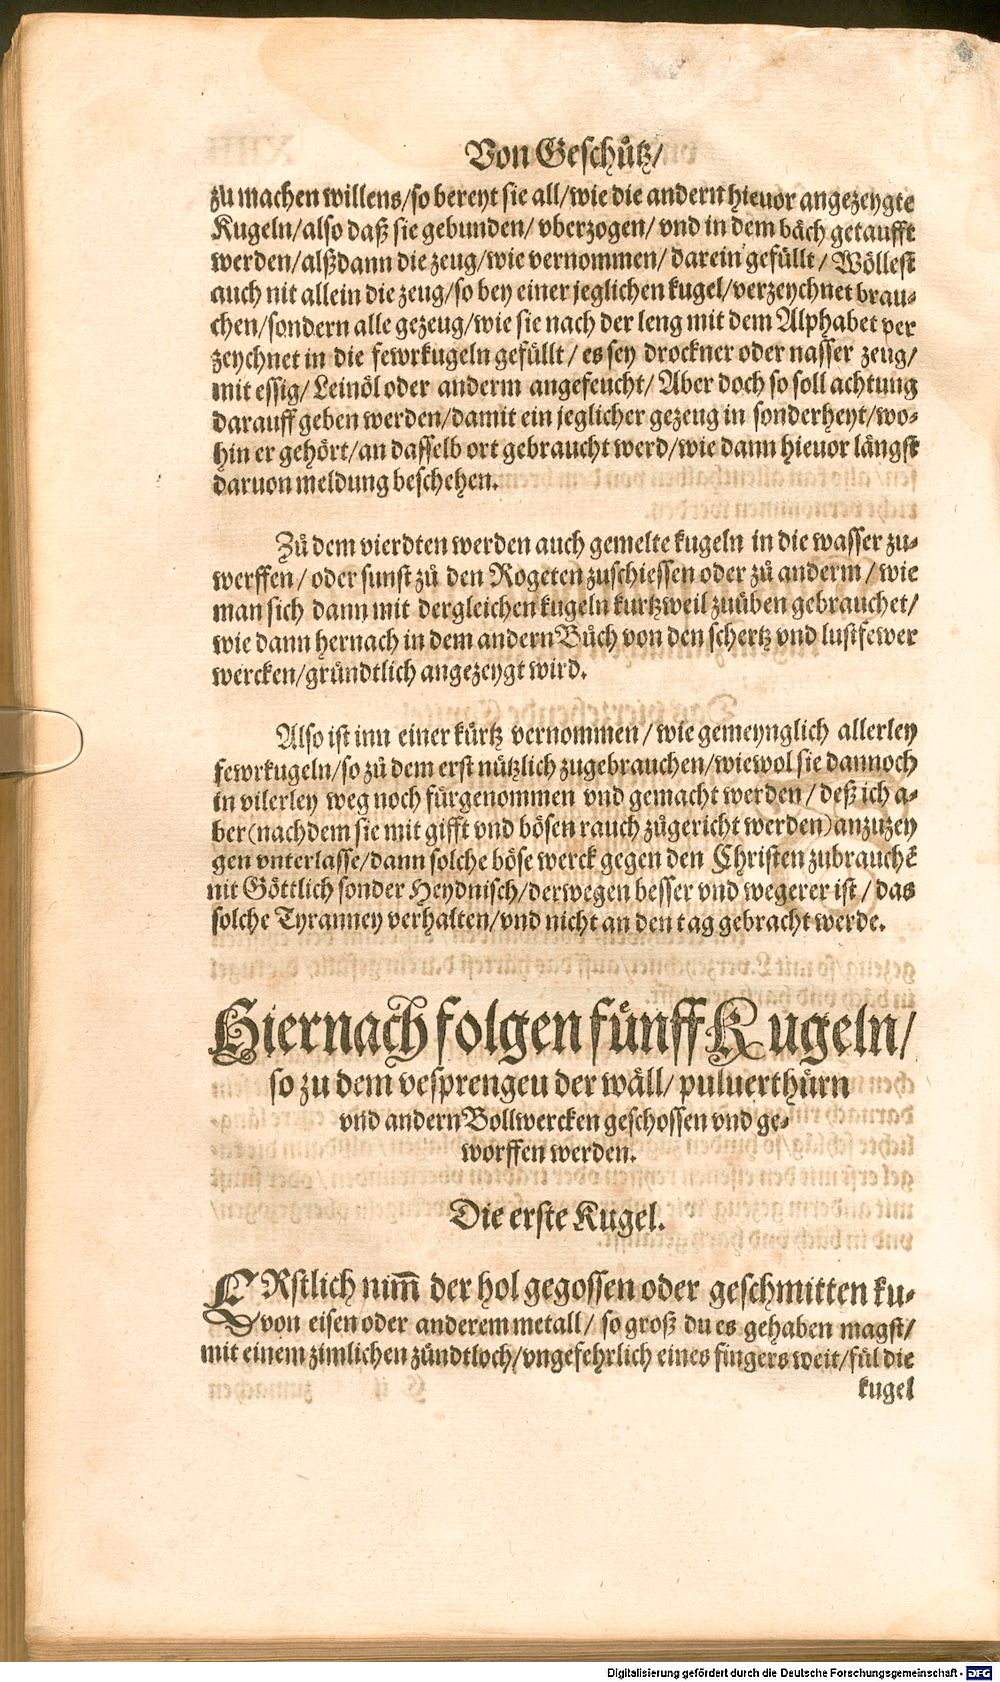 Von Geschütz/
zů machen willens/so bereyt sie all/wie die andern hieuor angezeygte
Kugeln/also daß sie gebunden/ vberzogen/ vnd in dem bäch getaufft
werden/alßdann die zeug/wie vernommen/ darein gefüllt/ Wöllest
auch nit allein die zeug/so bey einer jeglichen kugel/verzeychnet brau-
chen/sondern alle gezeug/wie sie nach der leng mit dem Alphabet ver
zeychnet in die fewrkugeln gefüllt/ es sey drockner oder nasser zeug/
mit essig/ Leinöl oder anderm angefeucht/ Aber doch so soll achtung
darauff geben werden/damit ein jeglicher gezeug in sonderheyt/wo-
hin er gehört/an dasselb ort gebraucht werd/wie dann hieuor längst
daruon meldung beschehen.
Zů dem vierdten werden auch gemelte kugeln in die wasser zu-
werffen/ oder sunst zů den Rogeten zuschiessen oder zů anderm/ wie
man sich dann mit dergleichen kugeln kurtzweil zuüben gebrauchet/
wie dann hernach in dem andern Bůch von den schertz vnd lustfewer
wercken/gründtlich angezeygt wird.
Also ist inn einer kürtz vernommen/ wie gemeynglich allerley
fewrkugeln/so zů dem erst nützlich zugebrauchen/wiewol sie dannoch
in vilerley weg noch fürgenommen vnd gemacht werden/ deß ich a-
ber(nachdem sie mit gifft vnd bösen rauch zůgericht werden)anzuzey
gen vnterlasse/dann solche böse werck gegen den Christen zubrauchē
nit Göttlich sonder Heydnisch/derwegen besser vnd wegerer ist/ das
solche Tyranney verhalten/vnd nicht an den tag gebracht werde.
Hiernach folgen fünff Kugeln/
so zu dem vesprengeu der wäll/ puluerthürn
vnd andern Bollwercken geschossen vnd ge-
worffen werden.
Die erste Kugel.
ERstlich nim̄ der hol gegossen oder geschmitten ku-
von eisen oder anderem metall/ so groß du es gehaben magst/
mit einem zimlichen zündtloch/vngefehrlich eines fingers weit/fül die
kugel
Digitalisierung gefördert durch die Deutsche Forschungsgemeinschaft - DFG